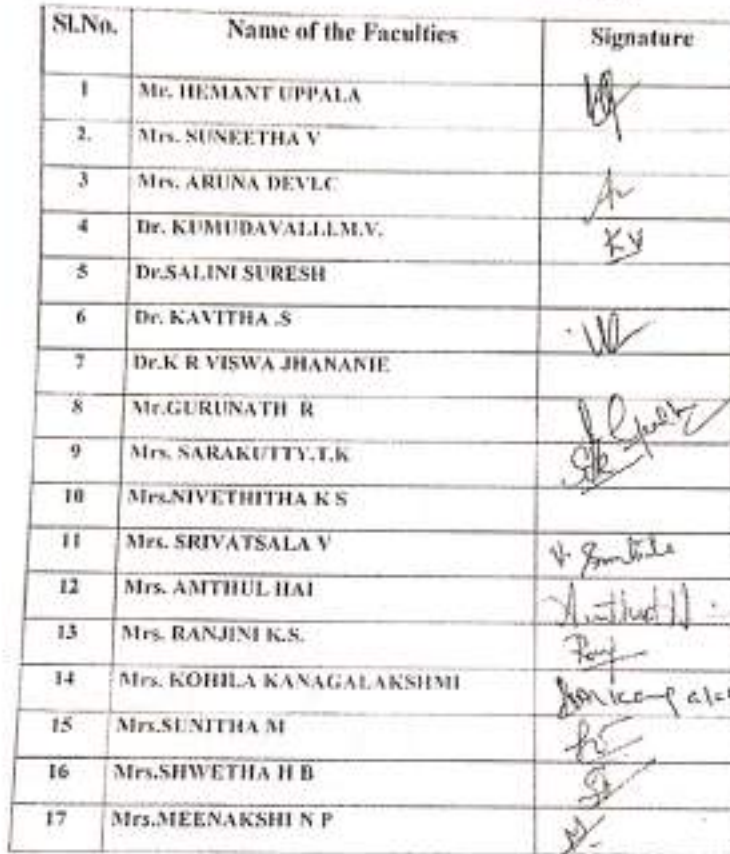 Sl.No. Name of the Faculties Signature
1 Mr. HEMANT UPPALA
2. Mrs. SUNEETHA V
3 Mrs. ARUNA DEVI.C
4 Dr. KUMUDAVALLI.M.V. KV
5 Dr.SALINI SURESH
6 Dr. KAVITHA .S
7 Dr.K R VISWA JHANANIE
8 Mr.GURUNATH R
9 Mrs. SARAKUTTY.T.K
10 Mrs.NIVETHITHA K S
11 Mrs. SRIVATSALA V
12 Mrs. AMTHUL HAI Amthul H
13 Mrs. RANJINI K.S.
14 Mrs. KOHILA KANAGALAKSHMI
15 Mrs.SUNITHA M
16 Mrs.SHWETHA H B
17 Mrs.MEENAKSHI N P